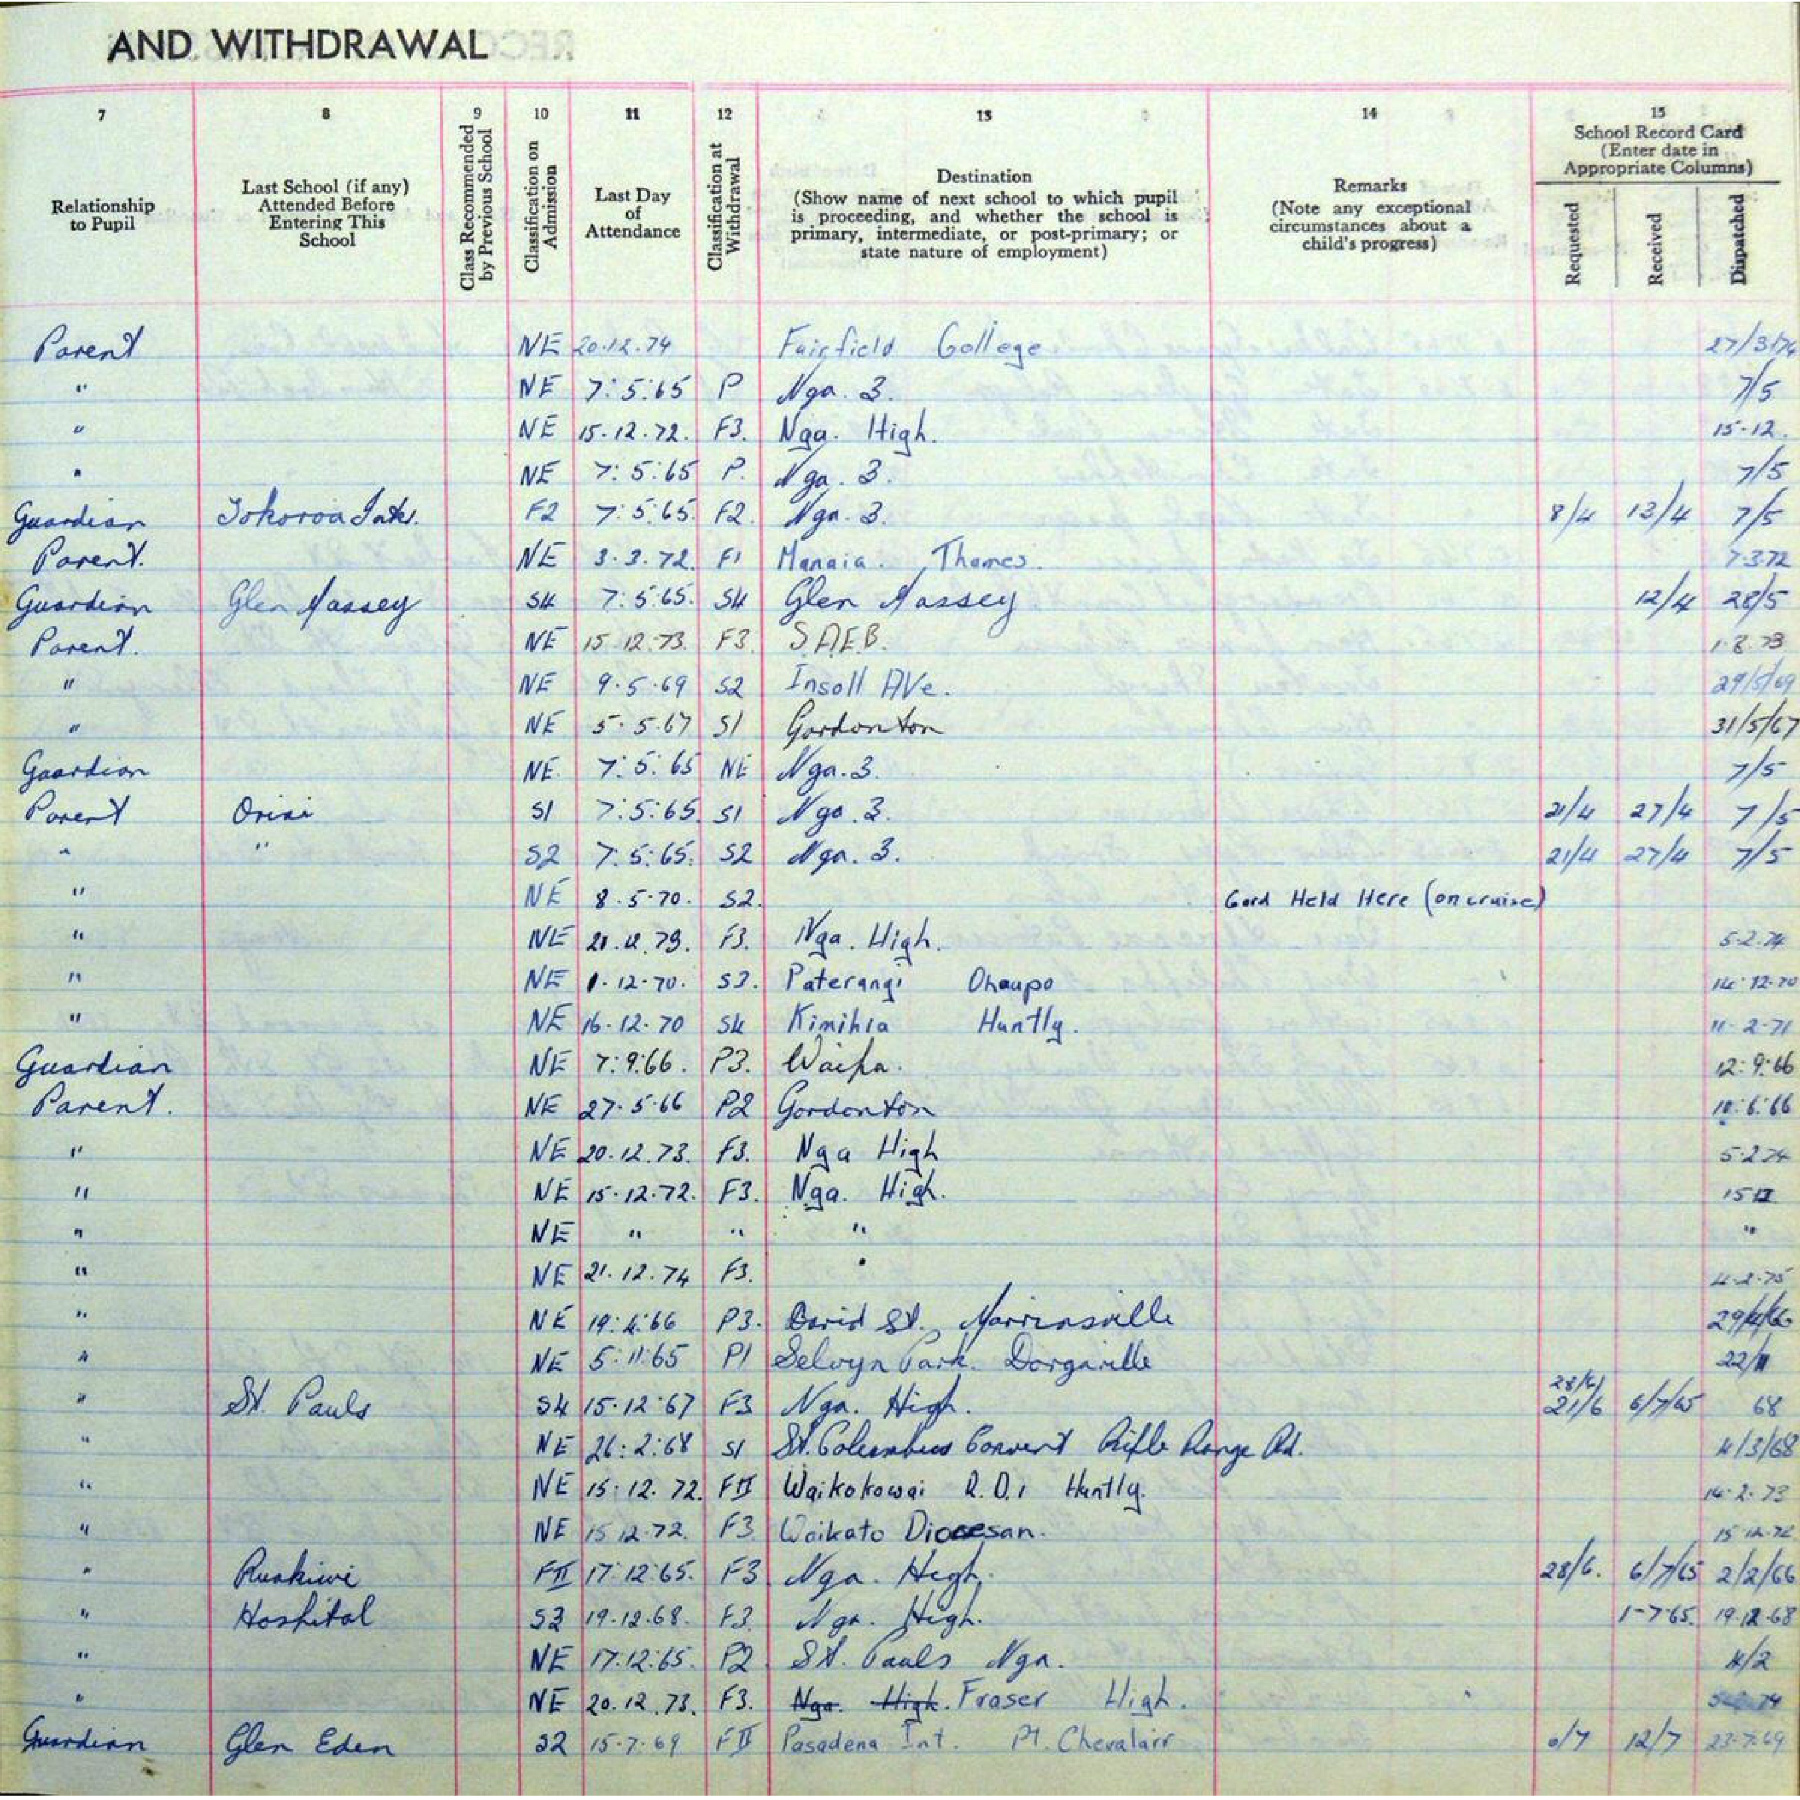 AND WITHDRAWAL
7 8 9 10 11 12 13 14 15
Relationship to Pupil
Last School (if any) Attended Before Entering This School
Class Recommended by Previous School
Classification on Admission
Last Day of Attendance
Classification at Withdrawal
Destination (Show name of next school to which pupil is proceeding, and whether the school is primary, intermediate, or post-primary; or state nature of employment)
Remarks (Note any exceptional circumstances about a child's progress)
School Record Card (Enter date in Appropriate Columns)
Requested Received Dispatched
Parent NE 20.12.74 Fairfield College 27/3/74
" NE 7:5:65 P Nga. 3. 7/5
" NE 15.12.72. F3. Nga. High. 15.12.
" NE 7:5:65 P. Nga. 3. 7/5
Guardian Tokoroa Inter. F2 7:5:65 F2. Nga. 3. 8/4 13/4 7/5
Parent. NE 3.3.72. F1 Manaia. Thames. 7.3.72
Guardian Glen Massey S4 7:5:65. S4 Glen Massey 12/4 28/5
Parent. NE 15.12.73. F3. S.A.E.B. 1.8.73
" NE 9.5.69 S2 Insoll AVe. 29/5/69
" NE 5.5.67 S1 Gordonton 31/5/67
Guardian NE. 7:5:65 NE Nga. 3. 7/5
Parent Orini S1 7:5:65 S1 Nga. 3. 21/4 27/4 7/5
" " S2 7:5:65. S2 Nga. 3. 21/4 27/4 7/5
" NE 8.5.70. S2. Card Held Here (on cruise)
" NE 21.12.73. F3. Nga. High. 5.2.74
" NE 1.12.70. S3. Paterangi Ohaupo 14.12.70
" NE 16.12.70 S4 Kimihia Huntly. 11.2.71
Guardian NE 7:9:66. P3. Waipa. 12:9:66
Parent. NE 27.5.66 P2 Gordonton 10:6:66
" NE 20.12.73. F3. Nga High 5.2.74
" NE 15.12.72. F3. Nga. High. 15
" NE " " " "
" NE 21.12.74 F3. " 4.2.75
" NE 19:4:66 P3. David St. Morrinsville 29/4/66
" NE 5:11:65 P1 Selwyn Park. Dargaville 22/11
" St. Pauls S4 15.12.67 F3 Nga. High. 28/6/ 21/6 6/7/65 68
" NE 26:2:68 S1 St. Columbus Convent Rifle Range Rd. 4/3/68
" NE 15.12.72. FII Waikokowai R.D.1 Huntly. 14.2.73
" NE 15.12.72. F3. Waikato Diocesan. 15.12.72
" Ruakiwi FII 17:12:65. F3 Nga. High. 28/6. 6/7/65 2/2/66
" Hospital S3 19.12.68. F3. Nga. High. 1-7-65. 19.12.68
" NE 17.12.65. P2. St. Pauls Nga. 4/2
" NE 20.12.73. F3. Nga. High. Fraser High. 74
Guardian Glen Eden S2 15.7.69 FII Pasadena Int. Pt. Chevalair 12/7 23.7.69